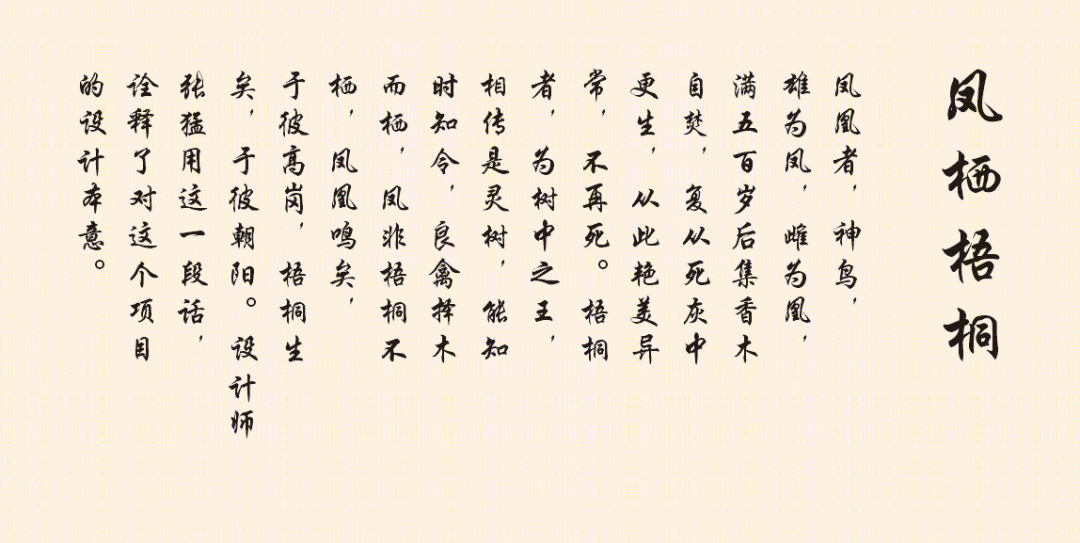 凤栖梧桐
凤凰者，神鸟，
雄为凤，雌为凰，
满五百岁后集香木
自焚，复从死灰中
更生，从此艳美异
常，不再死。梧桐
者，为树中之王，
相传是灵树，能知
时知令，良禽择木
而栖，凤非梧桐不
栖，凤凰鸣矣，
于彼高岗，梧桐生
矣，于彼朝阳。设计师
张猛用这一段话，
诠释了对这个项目
的设计本意。